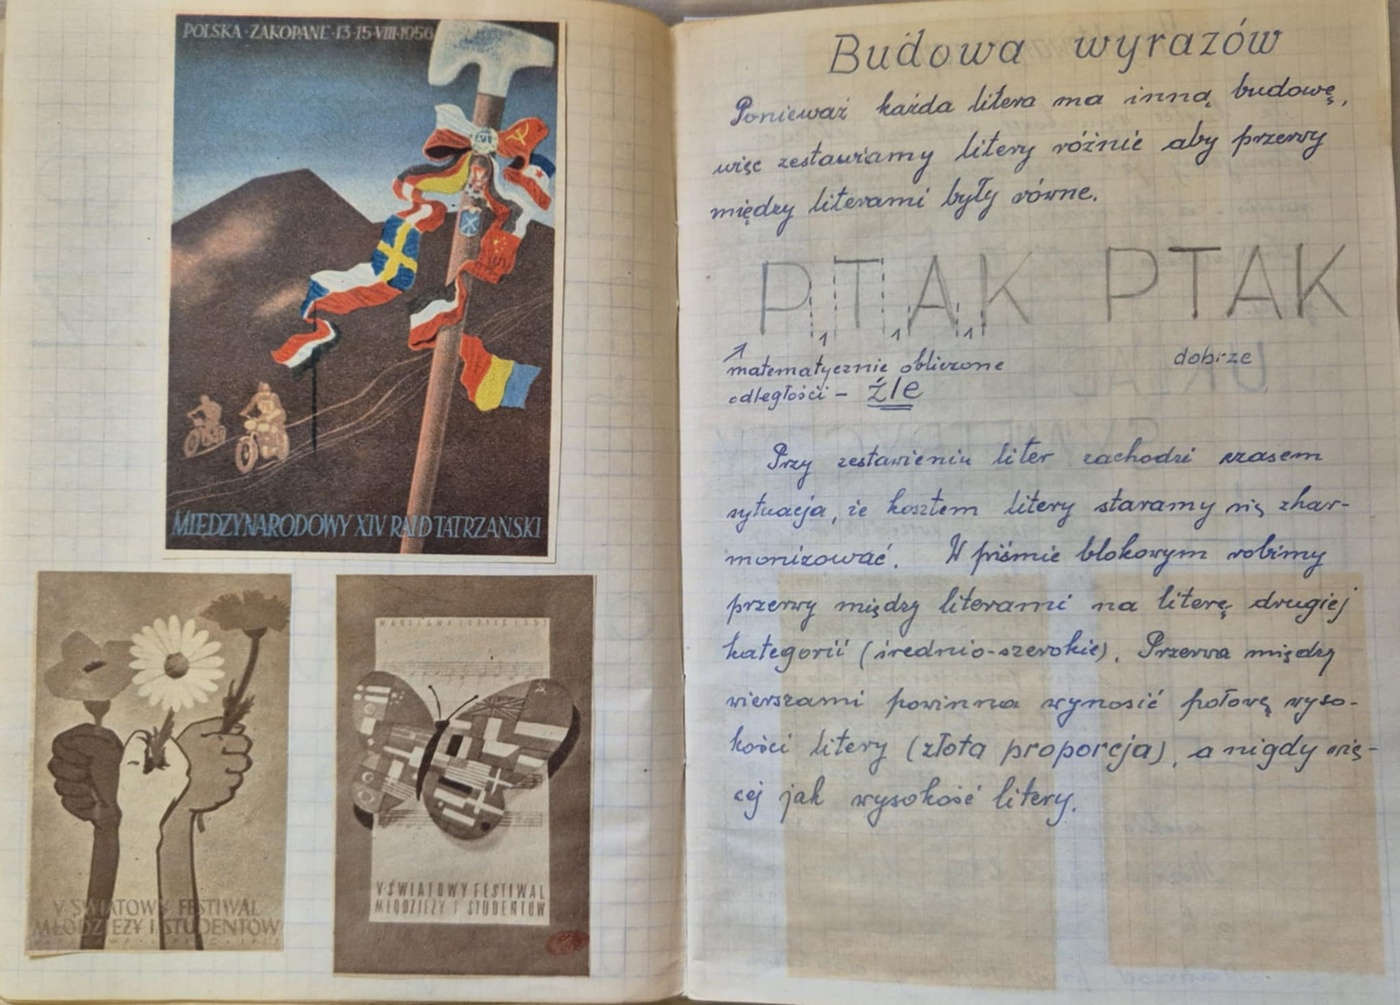 POLSKA · ZAKOPANE · 13-15-VIII-1956
MIĘDZYNARODOWY XIV RAJD TATRZAŃSKI
V ŚWIATOWY FESTIWAL
MŁODZIEŻY I STUDENTÓW
V ŚWIATOWY FESTIWAL
MŁODZIEŻY I STUDENTÓW
Budowa wyrazów
Ponieważ każda litera ma inną budowę,
więc zestawiamy litery różnie aby przerwy
między literami były równe.
PTAK PTAK
1 1 1
matematycznie obliczone
odległości – źle
dobrze
Przy zestawieniu liter zachodzi czasem
sytuacja, że kosztem litery staramy się zhar-
monizować. W piśmie blokowym robimy
przerwy między literami na literę drugiej
kategorii (średnio-szerokie). Przerwa między
wierszami powinna wynosić połowę wyso-
kości litery (złota proporcja), a nigdy wię-
cej jak wysokość litery.